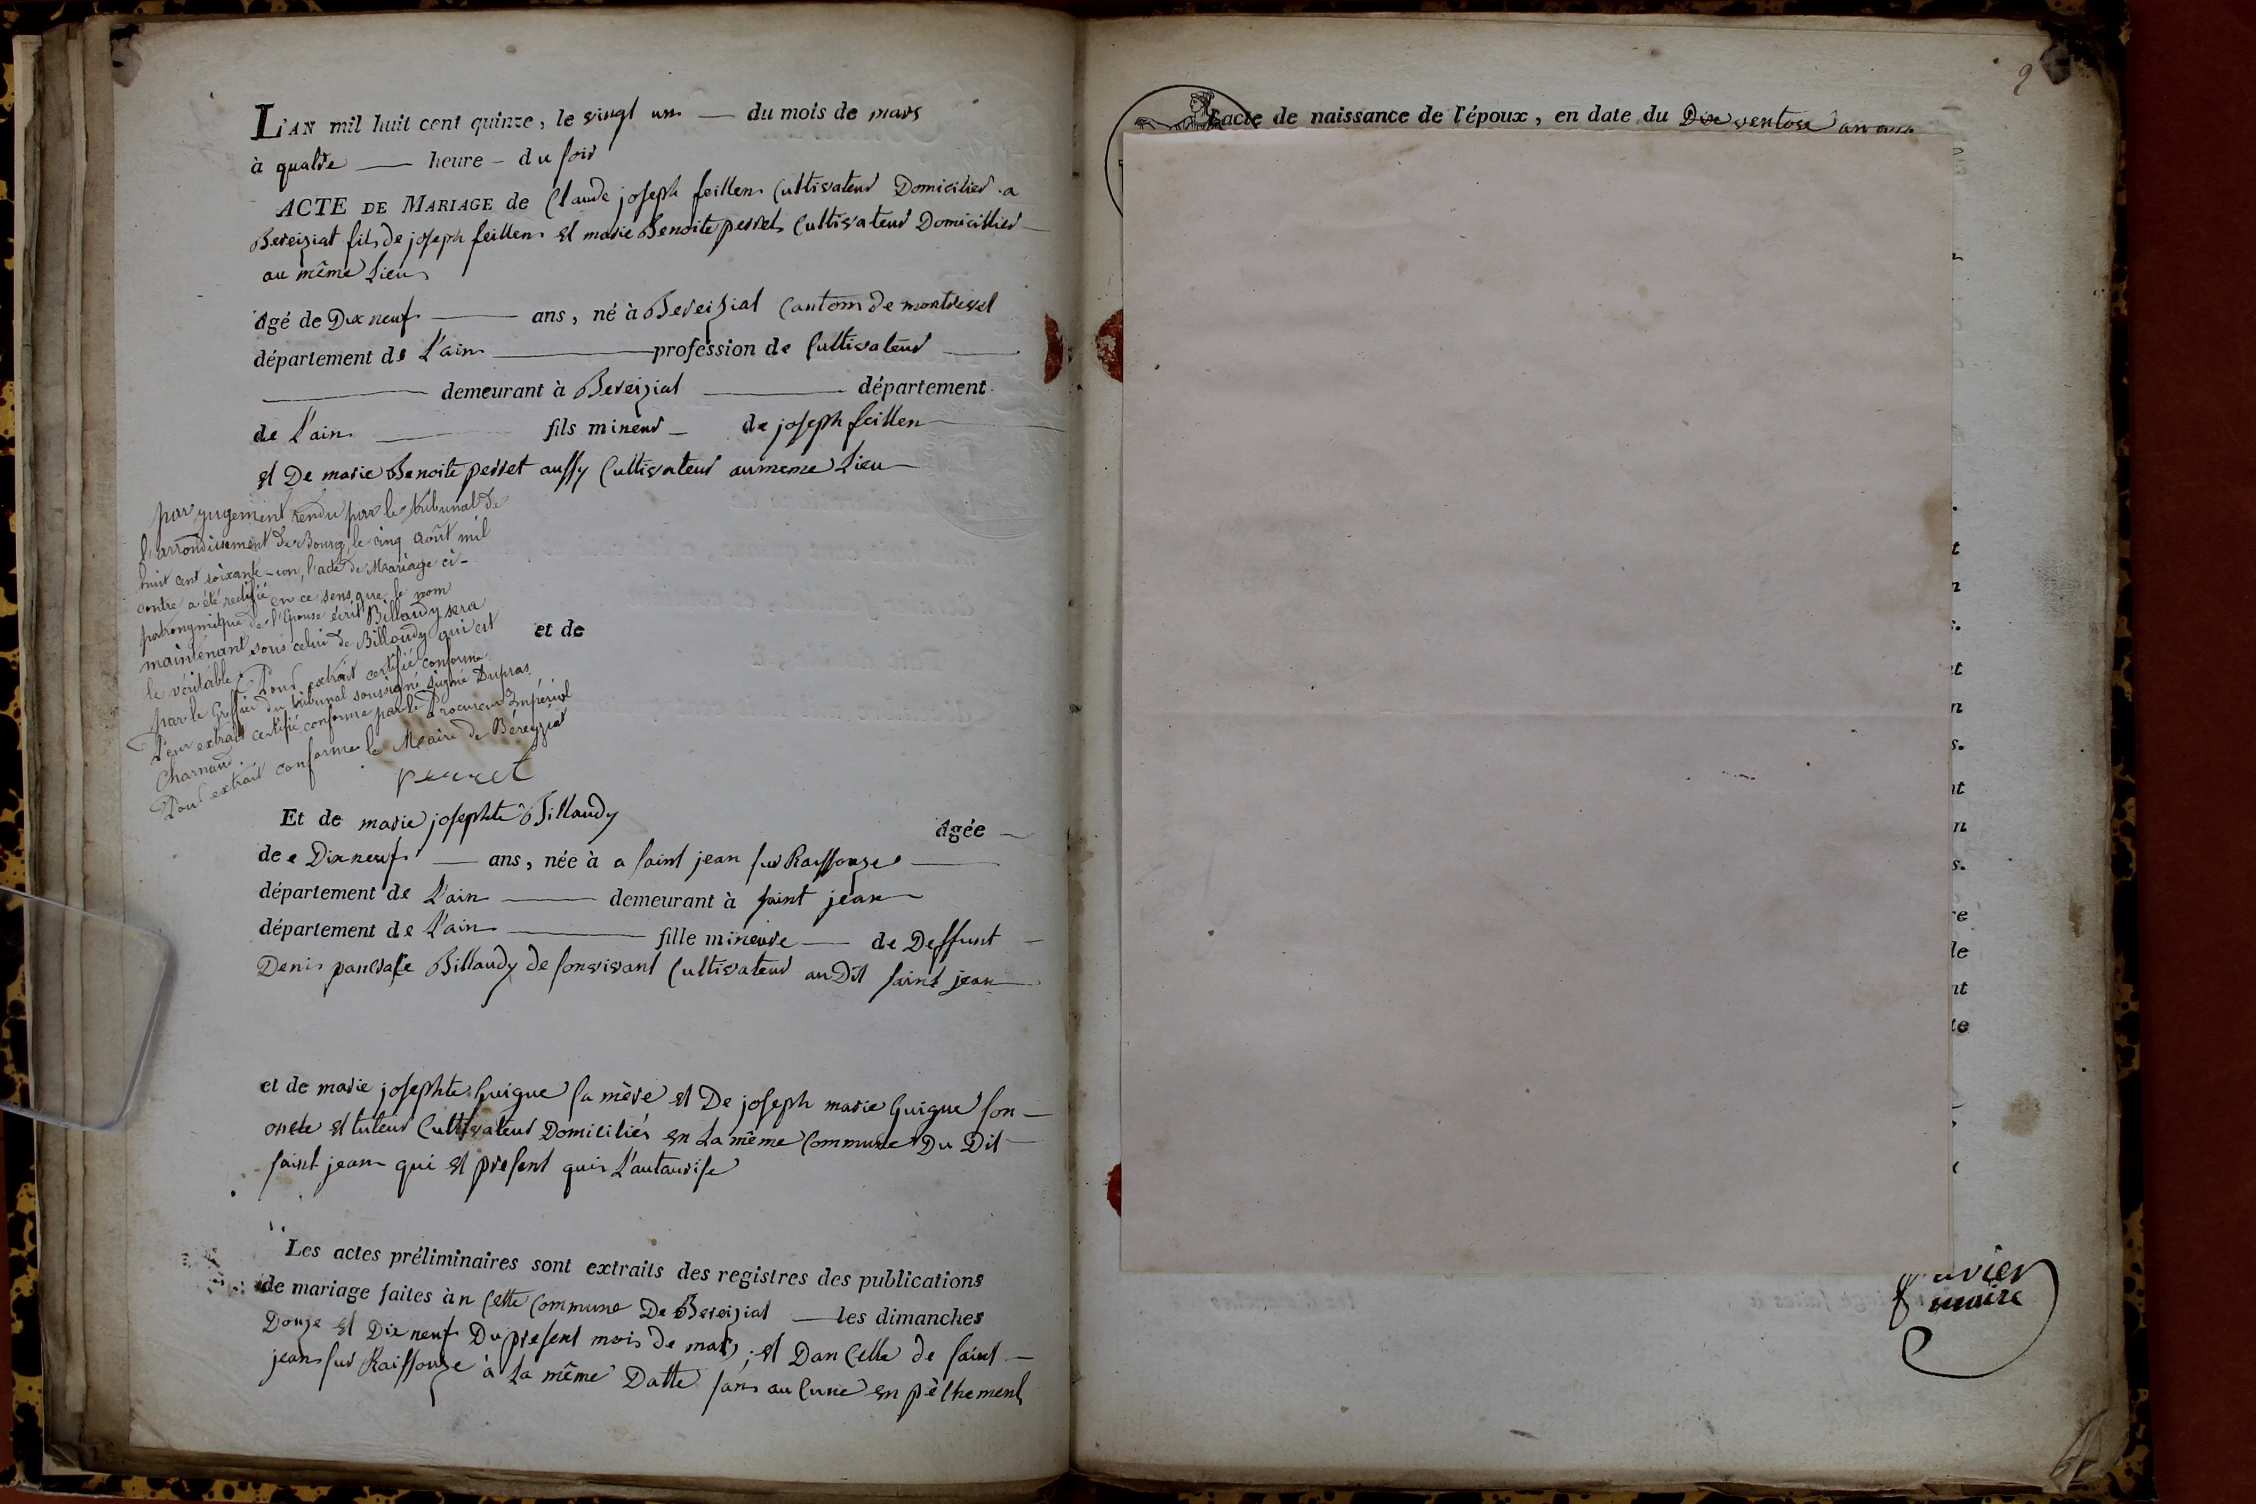 L'AN mil huit cent quinze, le vingt un — du mois de mars
à quatre — heure - du soir
ACTE DE MARIAGE de Claude joseph feillens Cultivateur Domicilier a
Bereiziat fils de joseph feillens et marie Benoite perret Cultivateur Domicillier —
au même Lieu
âgé de Dix neuf — ans, né à Bereizial Canton de montrevel
département de L'ain — profession de Cultivateur —
— demeurant à Bereizial — département
de L'ain — fils mineur — de joseph feillen —
et De marie Benoite perret aussy Cultivateur au meme Lieu —
par jugement rendu par le tribunal de
l'arrondissement de Bourg, le cinq août mil
huit cent soixante-un, l'acte de Mariage ci-
contre a été rectifié en ce sens que le nom
patronymique de l'épouse écrit Billandy sera
maintenant sous celui de Billoudy qui est
le véritable. Pour extrait certifié conforme
par le Greffier du tribunal soussigné signé Dupras
Pour extrait certifié conforme par le Procureur Impérial
Charnaud.
Pour extrait conforme le Maire de Béreyziat
perret
et de
Et de marie josephte Billaudy âgée —
de e Dix neuf — ans, née à a saint jean sur Raissouze —
département de L'ain — demeurant à saint jean —
département de L'ain — fille mineure — de Deffunt —
Denis pancrasse Billaudy de son vivant Cultivateur au Dit saint jean —
et de marie josephte Guigue sa mère et De joseph marie Guigue son —
oncle et tuteur Cultivateur Domiciliés en La même Commune Du Dit —
saint jean qui et present quis L'autaurise
Les actes préliminaires sont extraits des registres des publications
de mariage faites àn Cette Commune De Bereizial — les dimanches
Douze et Dix neuf Du present mois de mars ; et Dan Celle de saint —
jean sur Raissouze à La même Datte sans aucune en pêchement
2
L'acte de naissance de l'époux, en date du Dix ventose an
maire